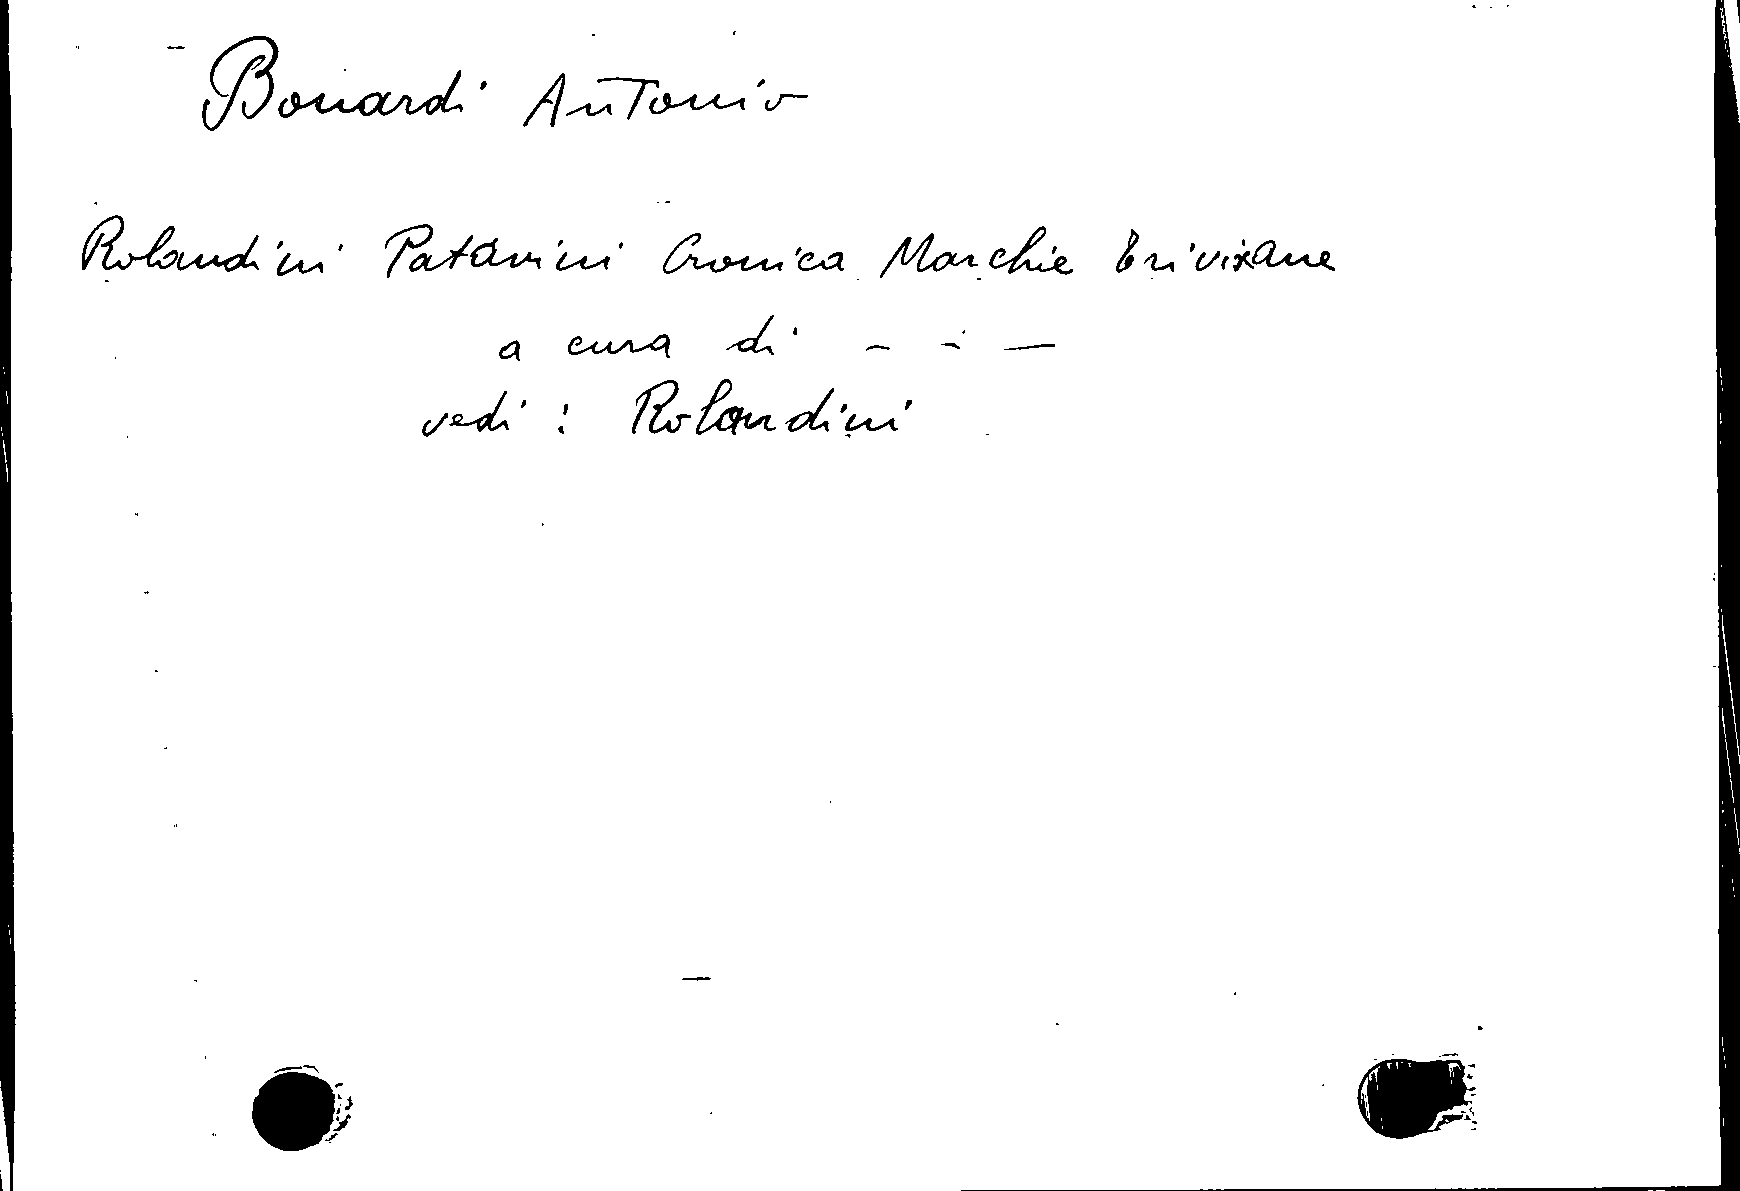 Bonardi Antonio
Rolandini Patavini Cronica Marchie trivixane
a cura di - - —
vedi : Rolandini